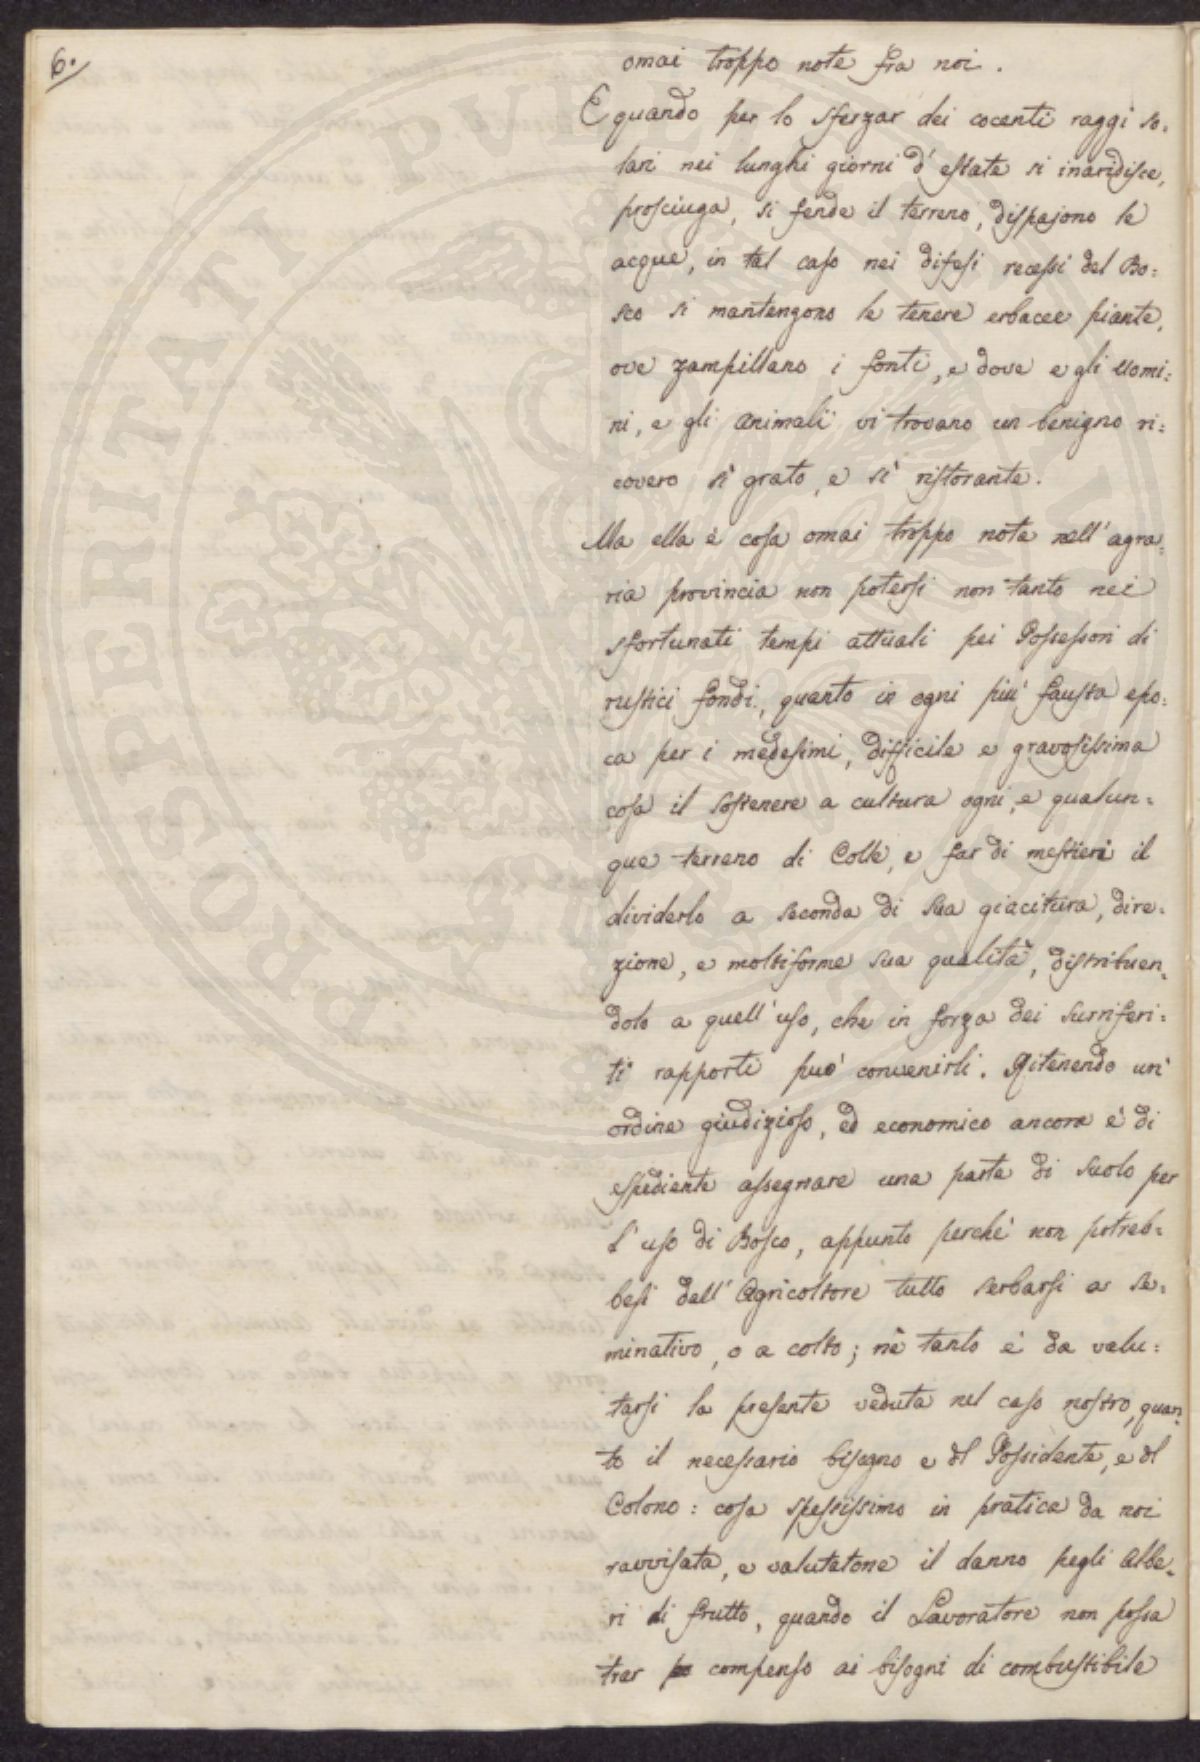 6.
omai troppo note fra noi.
E quando per lo sferzar dei cocenti raggi so:
lari nei lunghi giorni d'estate si inaridisce,
prosciuga, si fende il terreno, dispajono le
acque, in tal caso nei difesi recessi del Bo:
sco si mantengono le tenere erbacee piante,
ove zampillano i fonti, e dove e gli Uomi:
ni, e gli animali vi trovano un benigno ri:
covero sì grato, e sì ristorante.
Ma ella è cosa omai troppo nota nell'agra:
ria provincia non potersi non tanto nei
sfortunati tempi attuali pei Possessori di
rustici fondi, quanto in ogni più fausta epo:
ca per i medesimi, difficile e gravosissima
cosa il sostenere a cultura ogni, e qualun:
que terreno di Colle, e far di mestieri il
dividerlo a seconda di sua giacitura, dire:
zione, e moltiforme sua qualità, distribuen:
dolo a quell'uso, che in forza dei surriferi:
ti rapporti può convenirli. Ritenendo un'
ordine giudizioso, ed economico ancora è di
espediente assegnare una parte di suolo per
l'uso di Bosco, appunto perchè non potreb:
besi dall'Agricoltore tutto serbarsi a se:
minativo, o a colto; nè tanto è da valu:
tarsi la presente veduta nel caso nostro, quan:
to il necessario bisogno e del Possidente, e del
Colono: cosa spessissimo in pratica da noi
ravvisata, e valutatone il danno pegli Albe:
ri di frutto, quando il Lavoratore non possa
trar compenso ai bisogni di combustibile
PROSPERITATI PUBLICAE